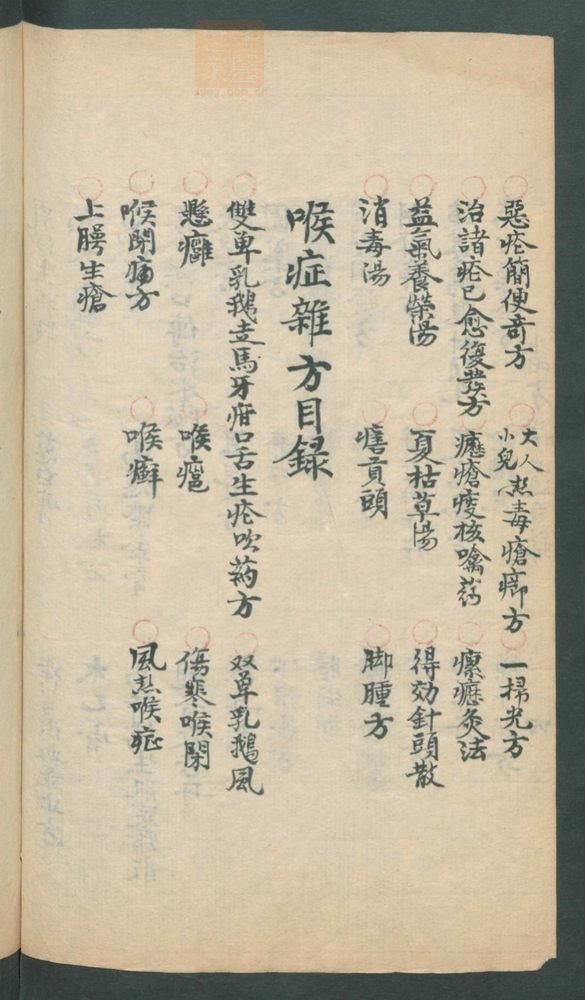 惡瘡簡便奇方　大人小兒热毒瘡癤方　一掃光方
治諸瘡已愈復發方　瘰瘡痰核噙药　瘰癧灸法
益氣養榮湯　夏枯草湯　得効針頭散
消毒湯　貢頭　脚腫方
喉症雜方目録
雙単乳鵝走馬牙疳口舌生瘡吹药方　双单乳鵝風
懸癰　喉瘡　傷寒喉閉
喉閉痛方　喉癬　風热喉症
上腭生瘡